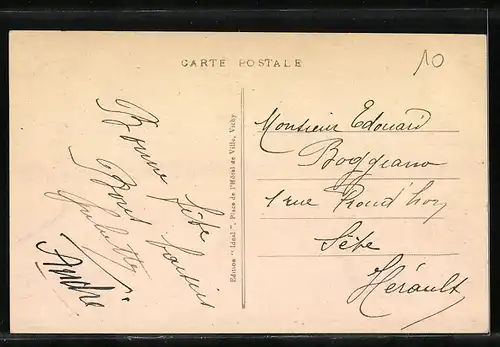 CARTE POSTALE
10
Bonne fête
André
Edition "Ideal", Place de l'Hôtel de Ville, Vichy
Monsieur Edouard
Boggiano
1 rue Rond'
Sète
Hérault